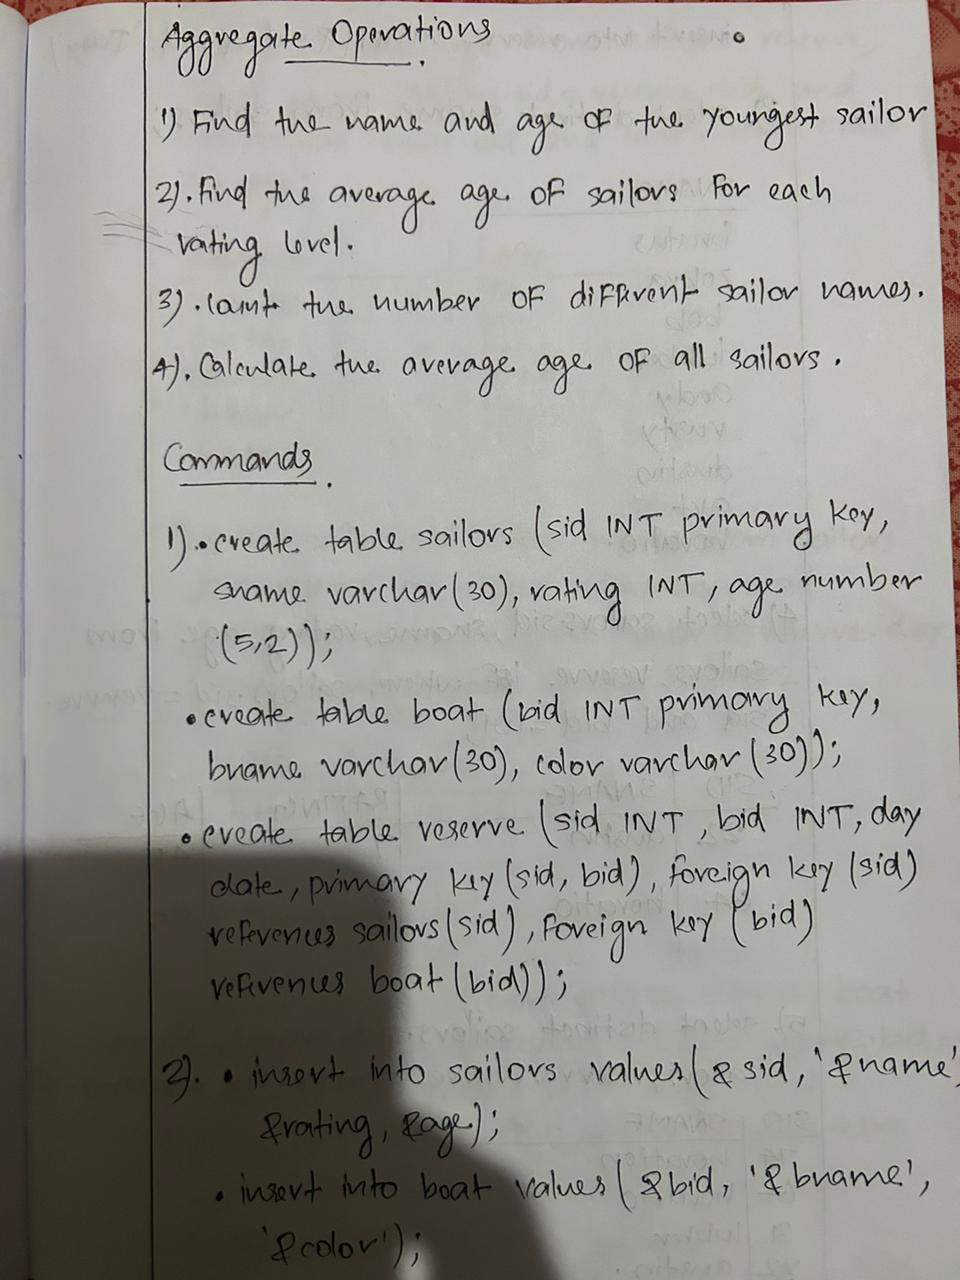 Aggregate Operations.
1) Find the name and age of the youngest sailor
2). Find the average age of sailors for each
rating level.
3). Count the number of different sailor names.
4). Calculate the average age of all sailors.
Commands.
1). • create table sailors (sid INT primary key,
sname varchar(30), rating INT, age number
(5,2));
• create table boat (bid INT primary key,
bname varchar(30), color varchar(30));
• create table reserve (sid INT, bid INT, day
date, primary key (sid, bid), foreign key (sid)
references sailors(sid), foreign key (bid)
references boat (bid));
2). • insert into sailors values(&sid, '&name',
&rating, &age);
• insert into boat values(&bid, '&bname',
'&color');